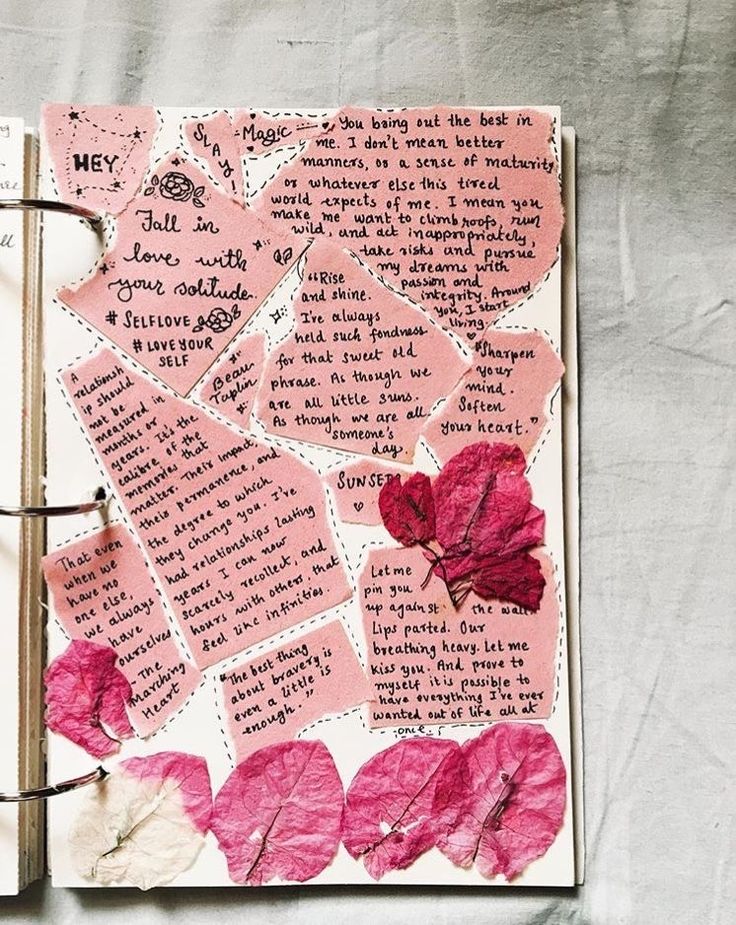 HEY
SLAY
Magic
You bring out the best in
me. I don't mean better
manners, or a sense of maturity
or whatever else this tired
world expects of me. I mean you
make me want to climb roofs, run
wild, and act inappropriately,
take risks and pursue
my dreams with
passion and
integrity. Around
you, I start
living.
Fall in
love with
your solitude.
#SELFLOVE
#LOVEYOUR
SELF
"Rise
and shine.
I've always
held such fondness
for that sweet old
phrase. As though we
are all little suns.
As though we are all
someone's
day.
Beau
Taplin
"Sharpen
your
mind.
Soften
your heart."
A
relationsh
ip should
not be
measured in
months or
years. It's the
calibre of the
memories that
matter. Their impact,
their permanence, and
the degree to which
they change you. I've
had relationships lasting
years I can now
scarcely recollect, and
hours with others, that
feel like infinities.
SUNSET
That even
when we
have no
one else,
we always
have
ourselves
- The
Marching
Heart
"The best thing
about bravery is
even a little is
enough."
Let me
pin you
up against the wall.
Lips parted. Our
breathing heavy. Let me
kiss you. And prove to
myself it is possible to
have everything I've ever
wanted out of life all at
once.